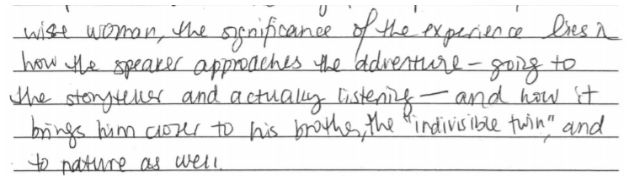 wise woman, the significance of the experience lies in
how the speaker approaches the adventure – going to
the storyteller and actually listening – and how it
brings him closer to his brother, the "indivisible twin," and
to nature as well.